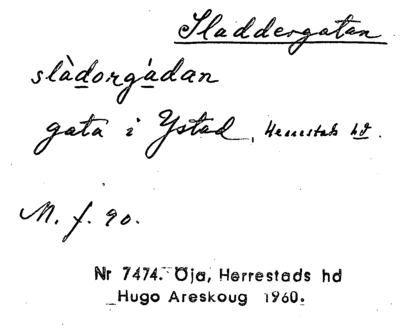 Sladdergatan
slàdorgàdan
gata i Ystad, Herrestads hd.
M. f. 90.
Nr 7474. Öja, Herrestads hd
Hugo Areskoug 1960.